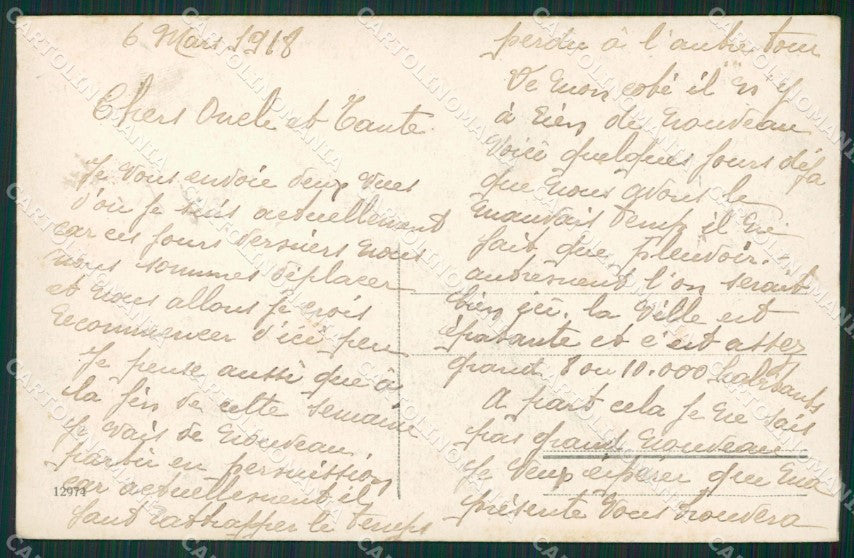 6 Mars 1918
Chers Oncle et Tante.
Je vous envoie deux vues
d'où je suis actuellement
car ces jours derniers nous
nous sommes déplacer
et nous allons je crois
recommencer d'ici peu
Je pense aussi que à
la fin de cette semaine
je vais de nouveau
partir en permission
car actuellement il
faut rattrapper le temps
12974
perdu à l'autre tour
De mon coté il n'y
à rien de nouveau
Voici quelques jours déja
que nous avons le
mauvais temps il ne
fait que pleuvoir.
autrement l'on serait
bien ici. la ville est
épatante et c'est assez
grand 8 ou 10.000 habitants
A part cela je ne sais
pas grand nouveau
Je veux éspérer que ma
présente vous trouvera
CARTOLINOMANIA